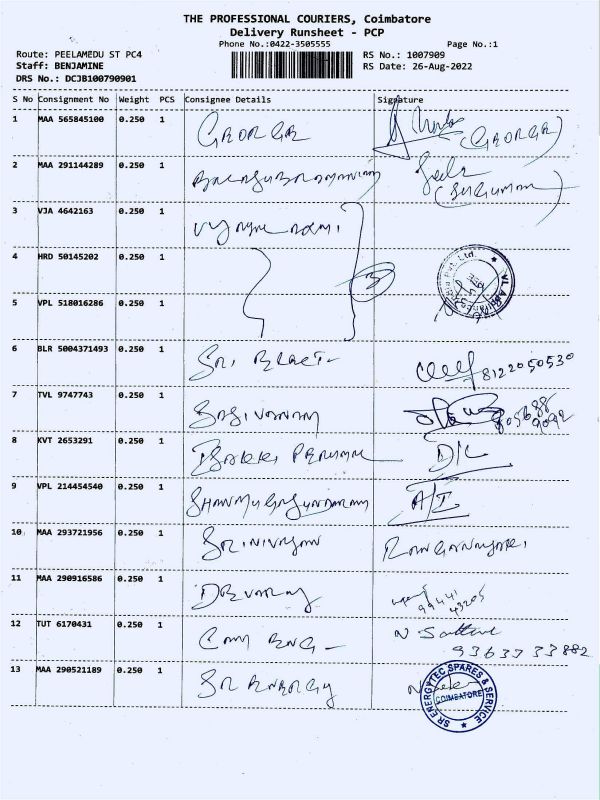 THE PROFESSIONAL COURIERS, Coimbatore
Delivery Runsheet - PCP
Phone No.:0422-3505555 Page No.:1
Route: PEELAMEDU ST PC4 RS No.: 1007909
Staff: BENJAMINE RS Date: 26-Aug-2022
DRS No.: DCJB100790901
S No Consignment No Weight PCS Consignee Details Signature
1 MAA 565845100 0.250 1 GEORGE (GEORGE)
2 MAA 291144289 0.250 1 BALASUBRAMANIAM
3 VJA 4642163 0.250 1
4 HRD 50145202 0.250 1
5 VPL 518016286 0.250 1
6 BLR 5004371493 0.250 1 SRI 8122050530
7 TVL 9747743 0.250 1 SASIVARNAM
8 KVT 2653291 0.250 1 ESAKKI PERUMAL D/L
9 VPL 214454540 0.250 1 SHANMUGASUNDARAM A/I
10 MAA 293721956 0.250 1 SRINIVASAN
11 MAA 290916586 0.250 1 DEVARAJ 99441 43205
12 TUT 6170431 0.250 1 ENG - N
13 MAA 290521189 0.250 1 SR ENERGY
SR ENERGYTEC SPARES & SERVICE
COIMBATORE